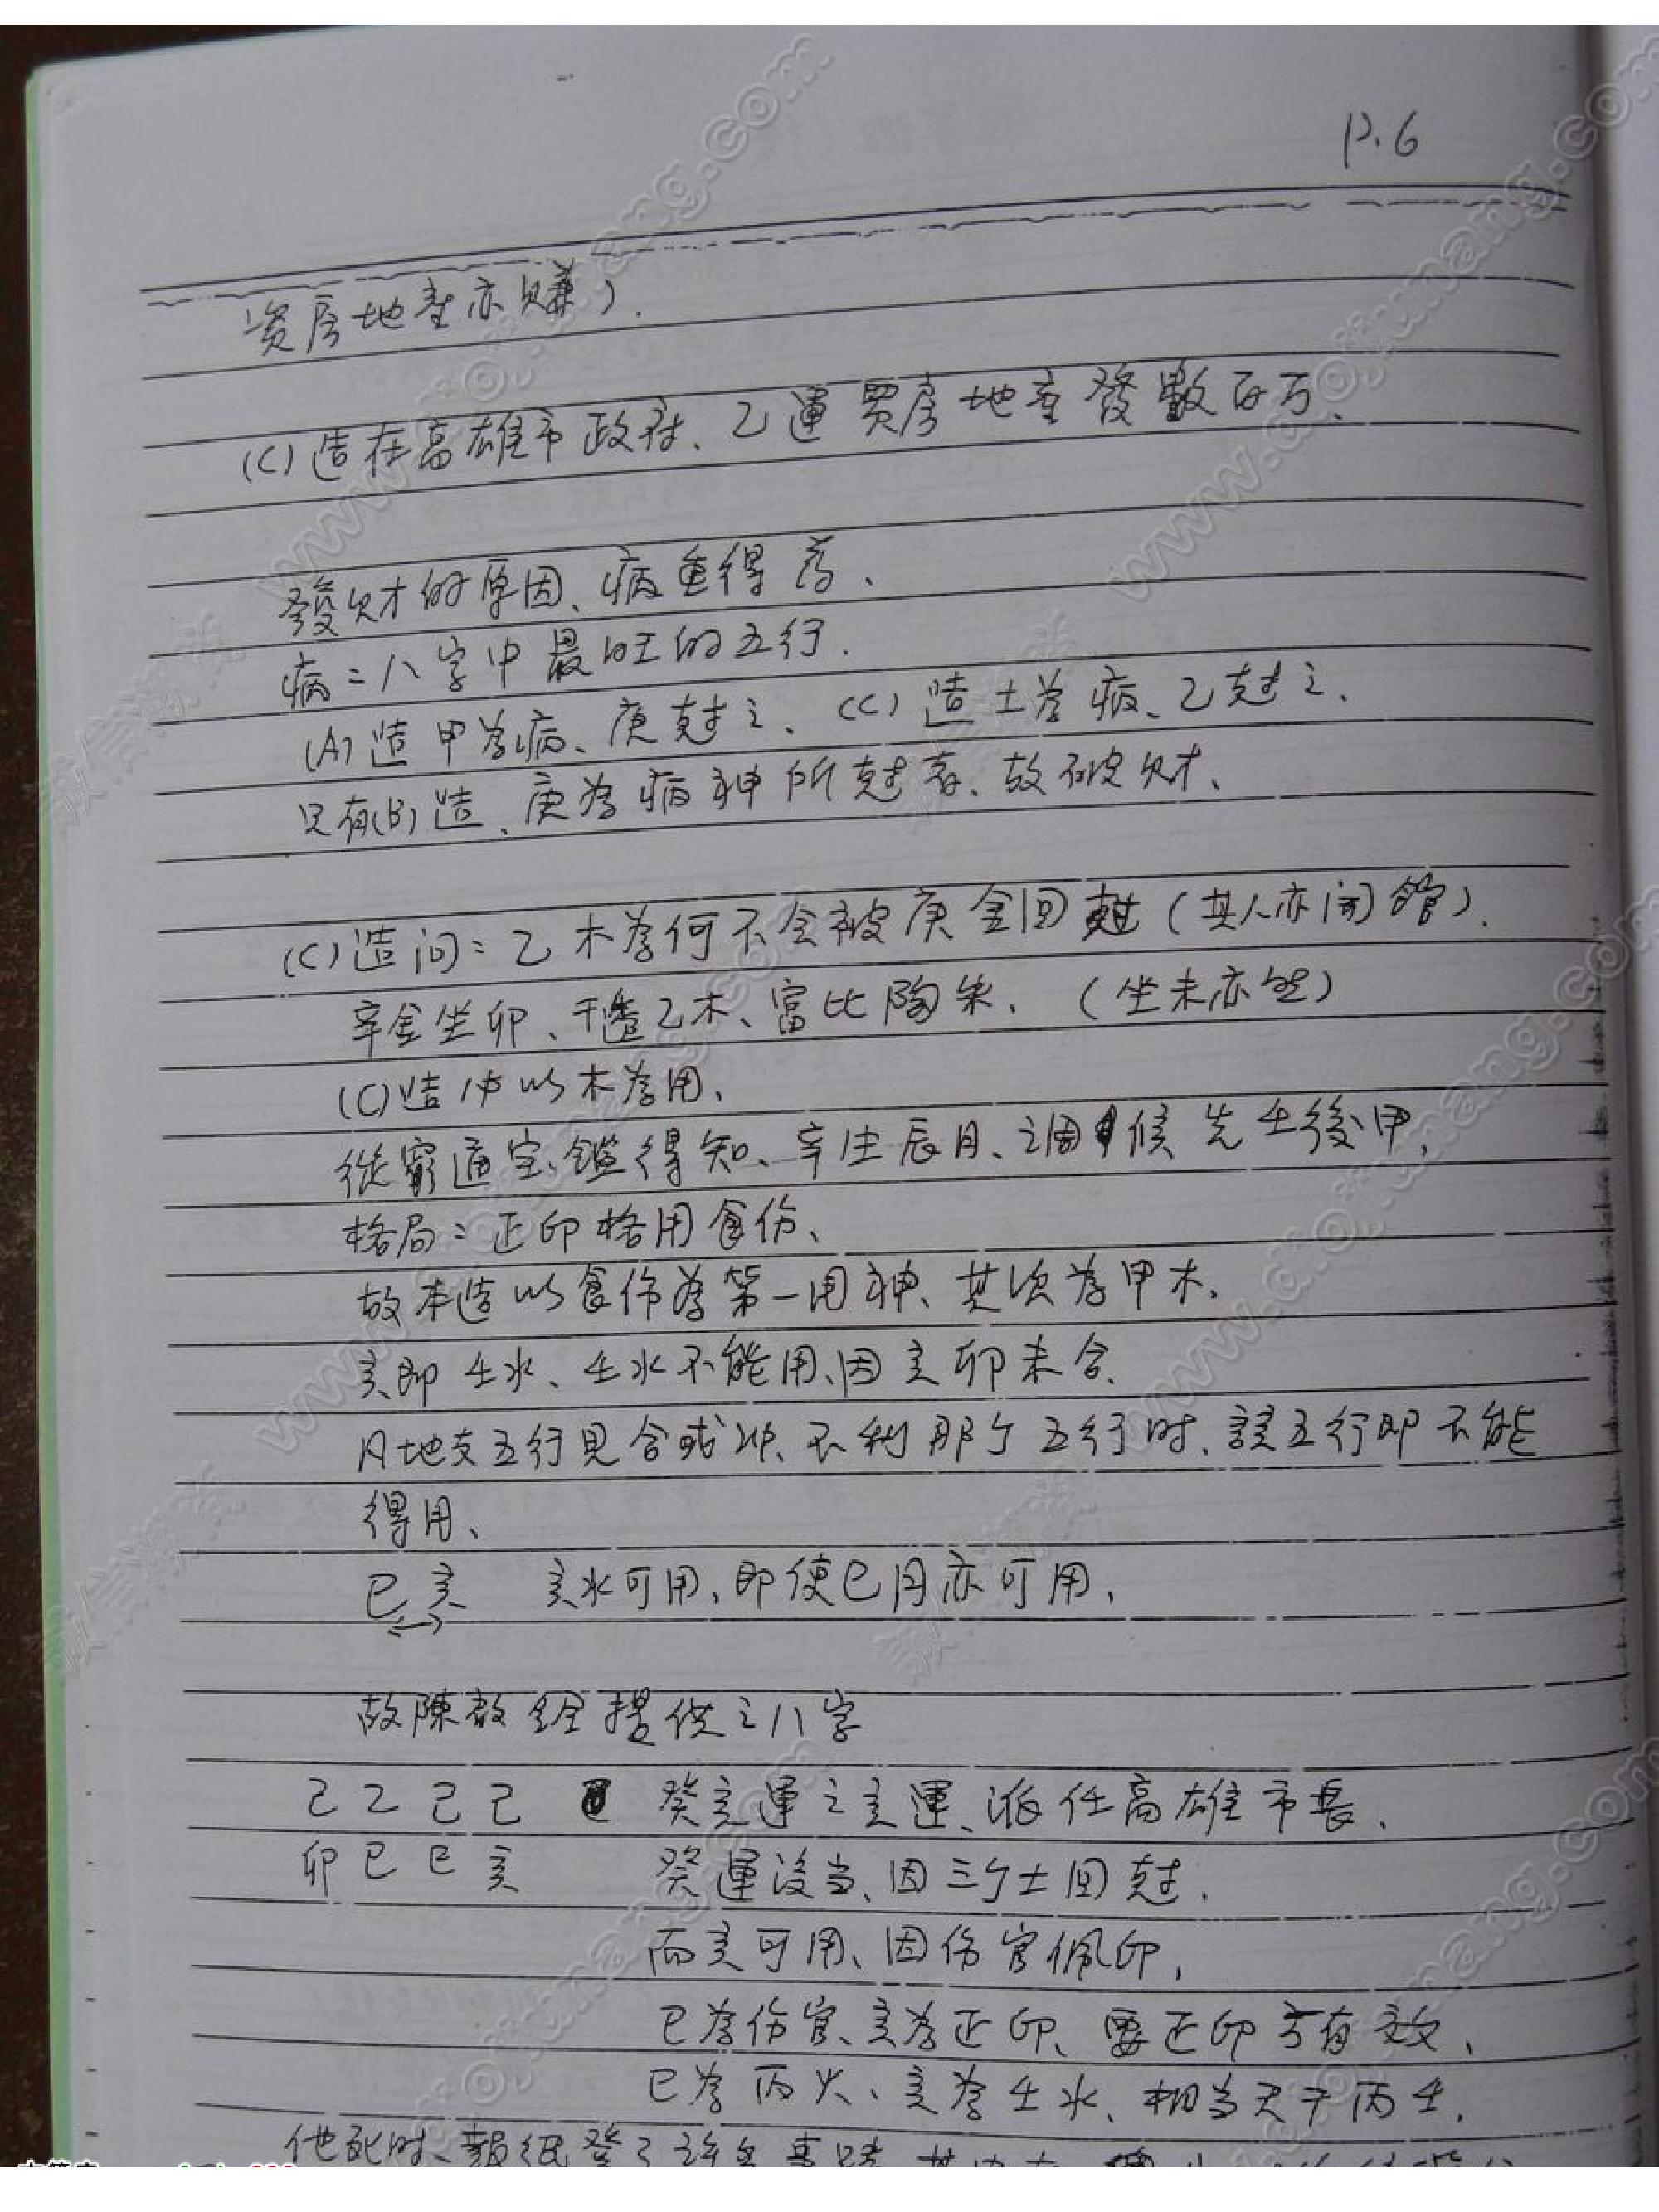 P.6
資房地產亦賺).
(C)造在高雄市政府、乙運買房地產發數百万、
發財的原因、病重得葯、
病=八字中最旺的五行.
(A)造甲為病、庚尅之、(C)造土為病、乙尅之、
只有(B)造、庚為病神所尅者、故破財、
(C)造问:乙木為何不会被庚金回尅(其人亦向管).
辛金坐卯、干透乙木、富比陶朱、(坐未亦然)
(C)造中以木為用、
從窮通宝鑑得知、辛生辰月、調候先壬後甲、
格局:正印格用食伤、
故本造以食伤為第一用神、其次為甲木、
亥即壬水、壬水不能用、因亥卯未合、
凡地支五行見合或冲、不利那个五行时、該五行即不能
得用、
巳亥 亥水可用、即使巳月亦可用、
故陳啟全提供之八字
己乙己己 癸亥運之亥運、派任高雄市長、
卯巳巳亥 癸運没当、因三个土回尅、
而亥可用、因伤官佩印、
巳為伤官、亥為正印、要正印方有效、
巳為丙火、亥為壬水、相当天干丙壬、
他死时、報纸登了許多事蹟、其中有
www.daojiuang.com